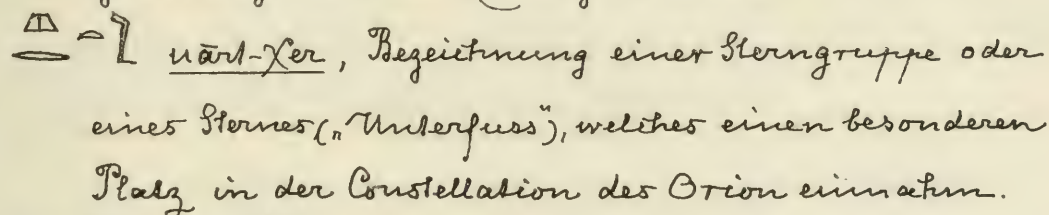 uārt-χer, Bezeichnung einer Sterngruppe oder
eines Sternes („Unterfuss“), welches einen besonderen
Platz in der Constellation des Orion einnahm.